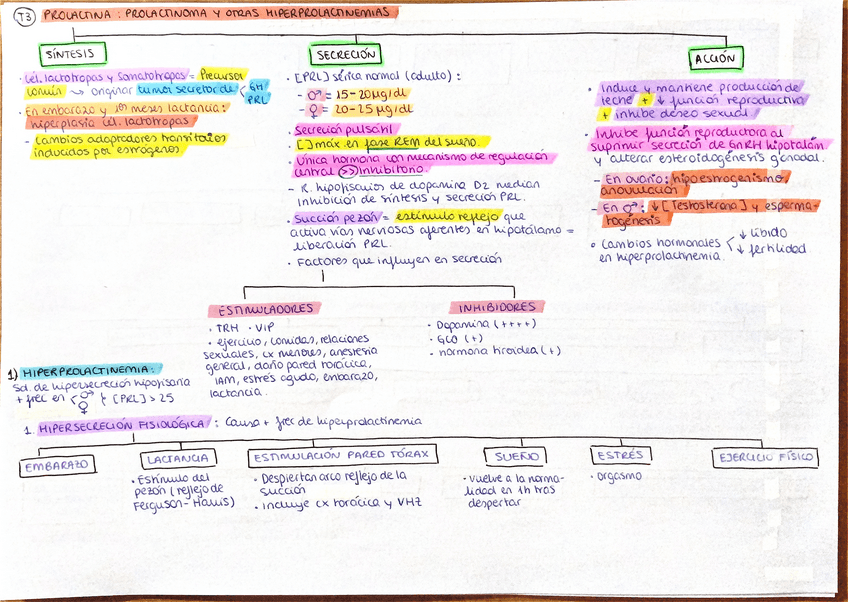 T3 PROLACTINA: PROLACTINOMA Y OTRAS HIPERPROLACTINEMIAS
SÍNTESIS
· Cél. lactotropas y somatotropas = Precursor
común → originar tumor secretor de GH
PRL
· En embarazo y 1os meses lactancia:
hiperplasia cél. lactotropas
- Cambios adaptadores transitorios
inducidos por estrógenos
SECRECIÓN
· [PRL] sérica normal (adulto):
- ♂ = 15-20 µg/dl
- ♀ = 20-25 µg/dl
· Secreción pulsátil
· [] máx en fase REM del sueño.
· Única hormona con mecanismo de regulación
central >> inhibitorio
- R. hipofisarios de dopamina D2 median
inhibición de síntesis y secreción PRL.
· Succión pezón = estímulo reflejo que
activa vías nerviosas aferentes en hipotálamo =
liberación PRL.
· Factores que influyen en secreción
ACCIÓN
· Induce y mantiene producción de
leche + ↓ función reproductiva
+ inhibe deseo sexual.
· Inhibe función reproductora al
suprimir secreción de GnRH hipotalám
y alterar esteroidogénesis gonadal.
- En ovario: hipoestrogenismo,
anovulación
- En ♂: ↓ [Testosterona] y esperma-
togénesis
· Cambios hormonales ↓ líbido
en hiperprolactinemia. ↓ fertilidad
ESTIMULADORES
· TRH · VIP
· ejercicio, comidas, relaciones
sexuales, cx menores, anestesia
general, daño pared torácica,
IAM, estrés agudo, embarazo,
lactancia.
INHIBIDORES
· Dopamina (++++)
· GCO (+)
· Hormona tiroidea (+)
1) HIPERPROLACTINEMIA:
Sd. de hipersecreción hipofisaria
+ frec en ♂ ♀ [PRL] > 25
1. HIPERSECRECIÓN FISIOLÓGICA: Causa + frec de hiperprolactinemia
EMBARAZO
LACTANCIA
· Estímulo del
pezón (reflejo de
Ferguson-Harris)
ESTIMULACIÓN PARED TÓRAX
· Despiertan arco reflejo de la
succión
· Incluye cx torácica y VHZ
SUEÑO
· Vuelve a la norma-
lidad en 1h tras
despertar
ESTRÉS
· Orgasmo
EJERCICIO FÍSICO